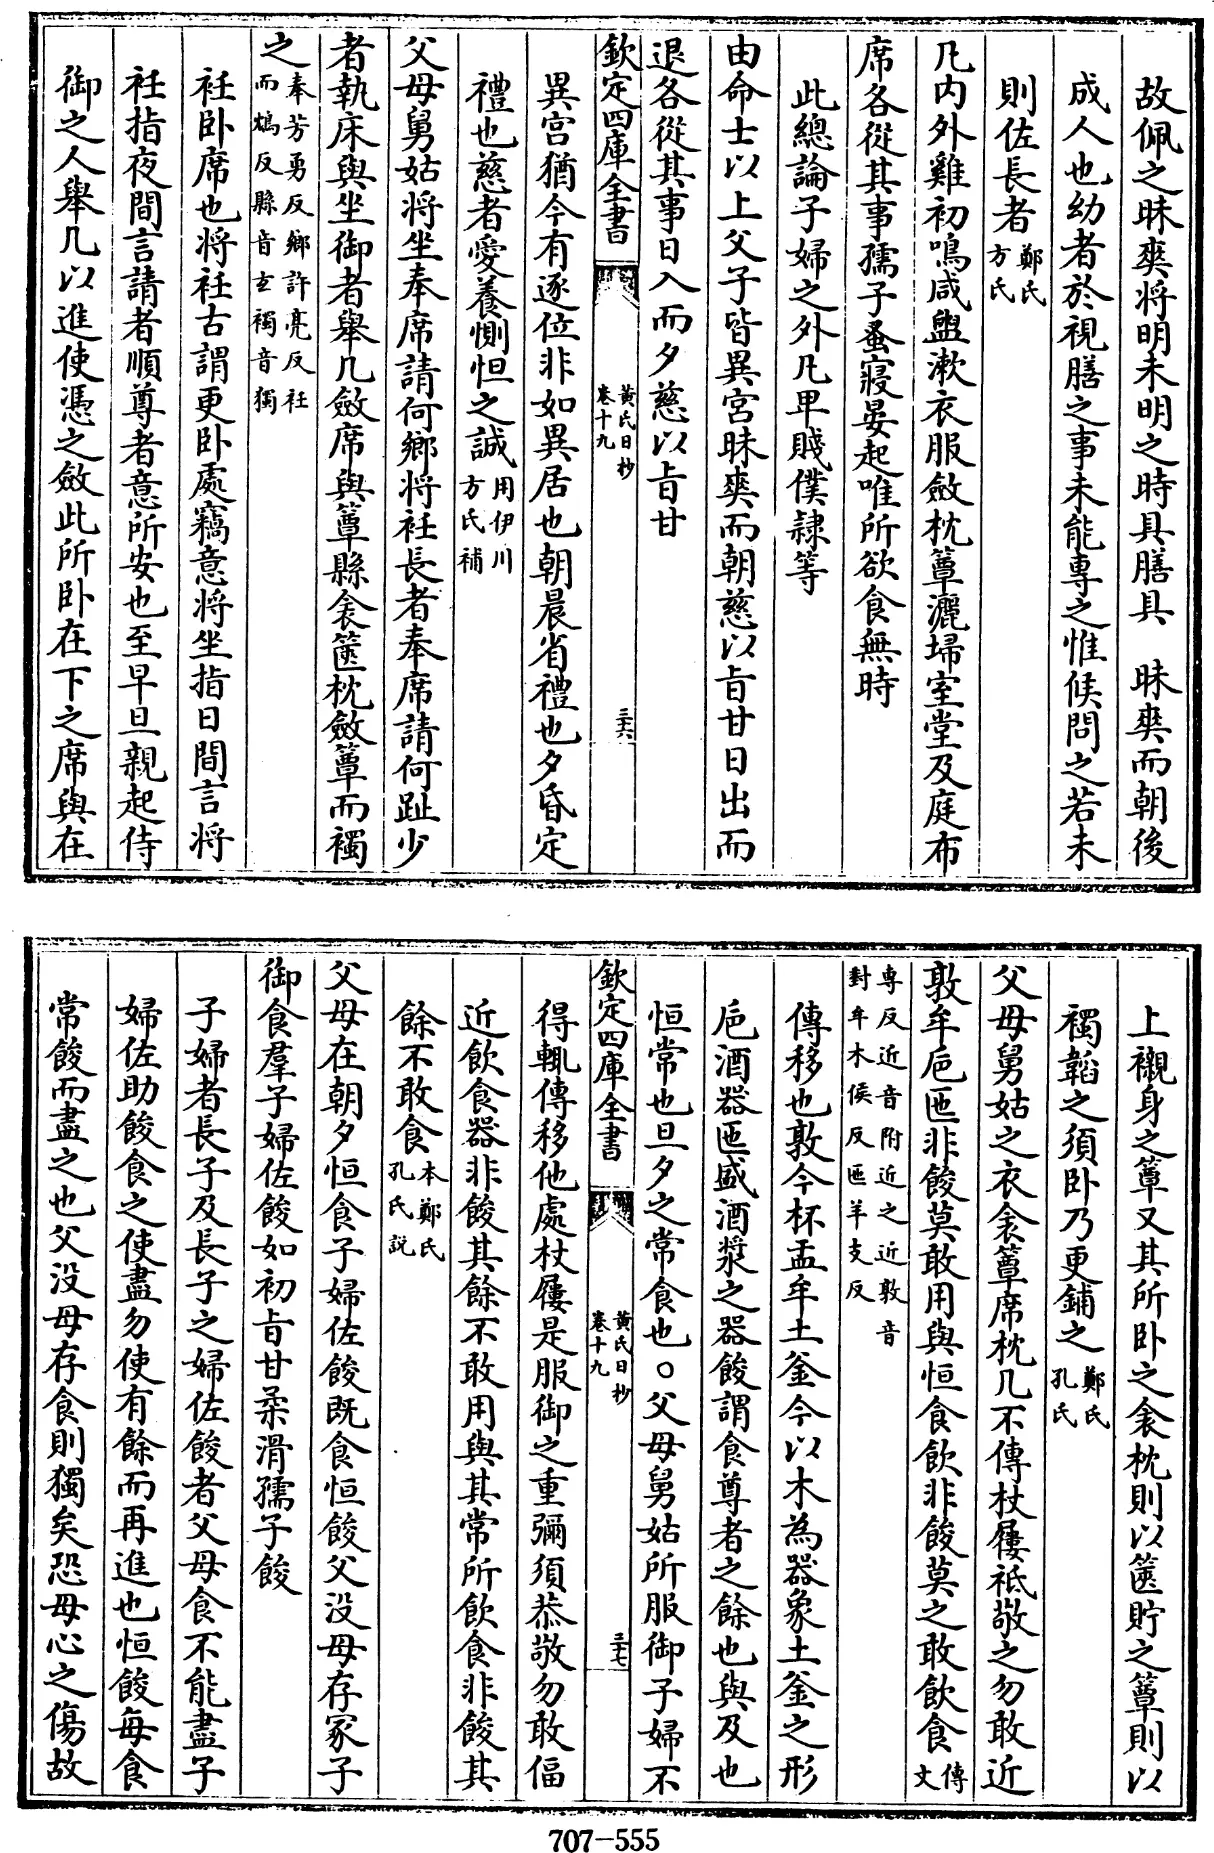 故佩之昧爽将明未明之時具膳具　昧爽而朝後
成人也幼者於視膳之事未能專之惟候問之若未
則佐長者鄭氏方氏
凡内外雞初鳴咸盥漱衣服斂枕簟灑埽室堂及庭布
席各從其事孺子蚤寢晏起唯所欲食無時
此總論子婦之外凡卑賤僕隸等
由命士以上父子皆異宮昧爽而朝慈以旨甘日出而
退各從其事日入而夕慈以旨甘
欽定四庫全書
黄氏日抄
卷十九
三六
異宮猶今有逐位非如異居也朝晨省禮也夕昏定
禮也慈者愛養惻怛之誠用伊川方氏補
父母舅姑将坐奉席請何鄉将衽長者奉席請何趾少
者執床與坐御者舉几斂席與簟縣衾篋枕斂簟而襡
之奉芳勇反鄉許亮反衽而鴆反縣音玄襡音獨
衽卧席也将衽古謂更卧處竊意将坐指日間言将
衽指夜間言請者順尊者意所安也至早旦親起侍
御之人舉几以進使憑之斂此所卧在下之席與在
上襯身之簟又其所卧之衾枕則以篋貯之簟則以
襡韜之須卧乃更鋪之鄭氏孔氏
父母舅姑之衣衾簟席枕几不傳杖屨祇敬之勿敢近
敦牟巵匜非餕莫敢用與恒食飲非餕莫之敢飲食傳文
專反近音附近之近敦音對牟木侯反匜羊支反
傳移也敦今杯盂牟土釜今以木為器象土釜之形
巵酒器匜盛酒漿之器餕謂食尊者之餘也與及也
恒常也旦夕之常食也○父母舅姑所服御子婦不
欽定四庫全書
黄氏日抄
卷十九
三七
得輒傳移他處杖屨是服御之重彌須恭敬勿敢偪
近飲食器非餕其餘不敢用與其常所飲食非餕其
餘不敢食本鄭氏孔氏說
父母在朝夕恒食子婦佐餕既食恒餕父没母存冢子
御食羣子婦佐餕如初旨甘柔滑孺子餕
子婦者長子及長子之婦佐餕者父母食不能盡子
婦佐助餕食之使盡勿使有餘而再進也恒餕每食
常餕而盡之也父没母存食則獨矣恐母心之傷故
707-555